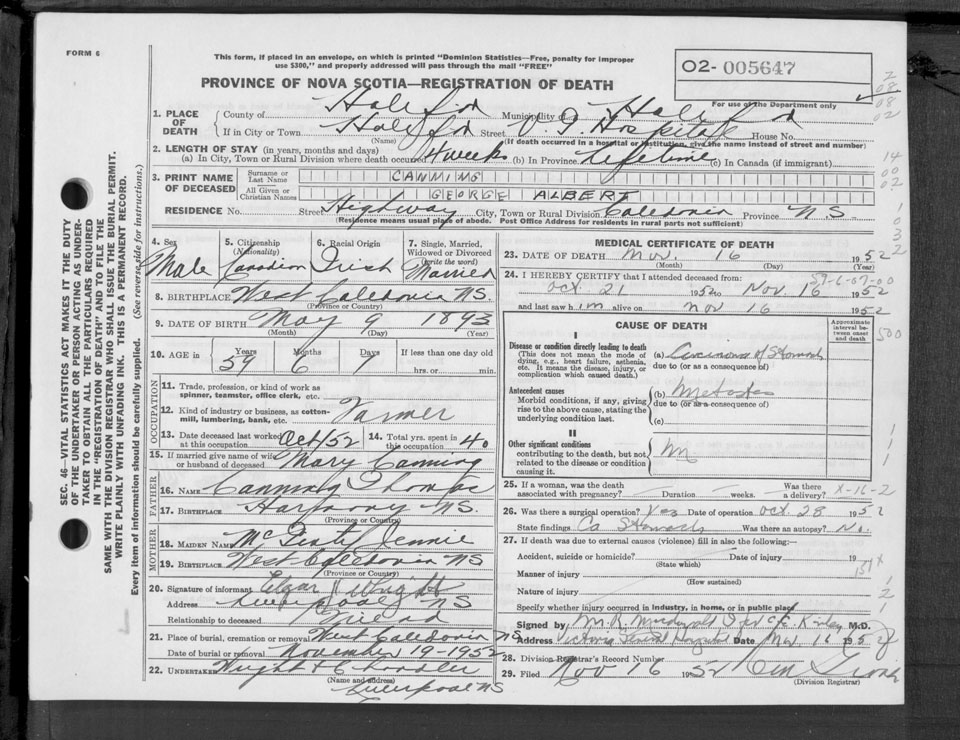 FORM 6
This form, if placed in an envelope, on which is printed "Dominion Statistics—Free, penalty for improper
use $300," and properly addressed will pass through the mail "FREE"
O2- 005647
PROVINCE OF NOVA SCOTIA—REGISTRATION OF DEATH
For use of the Department only
1. PLACE OF DEATH
County of Halifax Municipality of Halifax
If in City or Town Halifax Street V. G. Hospital House No.
(Name) (If death occurred in a hospital or institution, give the name instead of street and number)
2. LENGTH OF STAY (in years, months and days)
(a) In City, Town or Rural Division where death occurred 4 weeks (b) In Province Lifetime (c) In Canada (if immigrant)
3. PRINT NAME OF DECEASED
Surname or Last Name CANNING
All Given or Christian Names GEORGE ALBERT
RESIDENCE No. Street Highway City, Town or Rural Division Caledonia Province N.S.
(Residence means usual place of abode. Post Office Address for residents in rural parts not sufficient)
4. Sex Male
5. Citizenship (Nationality) Canadian
6. Racial Origin Irish
7. Single, Married, Widowed or Divorced (write the word) Married
8. BIRTHPLACE West Caledonia N.S.
(Province or Country)
9. DATE OF BIRTH May 9 1893
(Month) (Day) (Year)
10. AGE in Years Months Days If less than one day old
59 6 7 hrs. or min.
OCCUPATION
11. Trade, profession or kind of work as
spinner, teamster, office clerk, etc.
12. Kind of industry or business, as cotton-
mill, lumbering, bank, etc. Farmer
13. Date deceased last worked at this occupation Oct/52 14. Total yrs. spent in this occupation 40
15. If married give name of wife or husband of deceased Mary Canning
FATHER
16. NAME Canning Thomas
17. BIRTHPLACE Harmony N.S.
(Province or Country)
MOTHER
18. MAIDEN NAME Jennie
19. BIRTHPLACE West Caledonia NS
(Province or Country)
20. Signature of informant Elgar Wright
Address Liverpool NS
Relationship to deceased Friend
21. Place of burial, cremation or removal West Caledonia NS
Date of burial or removal November 19-1952
22. UNDERTAKER Wright & Chandler
(Name and address)
Liverpool NS
MEDICAL CERTIFICATE OF DEATH
23. DATE OF DEATH Nov. 16 1952
(Month) (Day) (Year)
24. I HEREBY CERTIFY that I attended deceased from:
Oct. 21 1952 to Nov 16 1952
and last saw him alive on Nov 16 1952
CAUSE OF DEATH
Approximate interval between onset and death
I
Disease or condition directly leading to death
(This does not mean the mode of dying, e.g., heart failure, asthenia, etc. It means the disease, injury, or complication which caused death.)
(a) Carcinoma of Stomach
due to (or as a consequence of)
Antecedent causes
Morbid conditions, if any, giving rise to the above cause, stating the underlying condition last.
(b)
due to (or as a consequence of)
(c)
II
Other significant conditions
contributing to the death, but not related to the disease or condition causing it.
25. If a woman, was the death associated with pregnancy? Duration weeks. Was there a delivery?
X-16-2
26. Was there a surgical operation? Yes Date of operation Oct. 28 1952
State findings Ca Stomach Was there an autopsy? No.
27. If death was due to external causes (violence) fill in also the following:—
Accident, suicide or homicide? Date of injury 19
(State which)
151X
Manner of injury
(How sustained)
Nature of injury
Specify whether injury occurred in industry, in home, or in public place
Signed by M.D.
Address Victoria General Hospital Date Nov. 16 1952
28. Division Registrar's Record Number
29. Filed Nov 16 1952
(Division Registrar)
SEC. 46—VITAL STATISTICS ACT MAKES IT THE DUTY
OF THE UNDERTAKER OR PERSON ACTING AS UNDER-
TAKER TO OBTAIN ALL THE PARTICULARS REQUIRED
IN THE "REGISTRATION OF DEATH" AND TO FILE THE
SAME WITH THE DIVISION REGISTRAR WHO SHALL ISSUE THE BURIAL PERMIT.
WRITE PLAINLY WITH UNFADING INK. THIS IS A PERMANENT RECORD.
Every item of information should be carefully supplied. (See reverse side for instructions.)